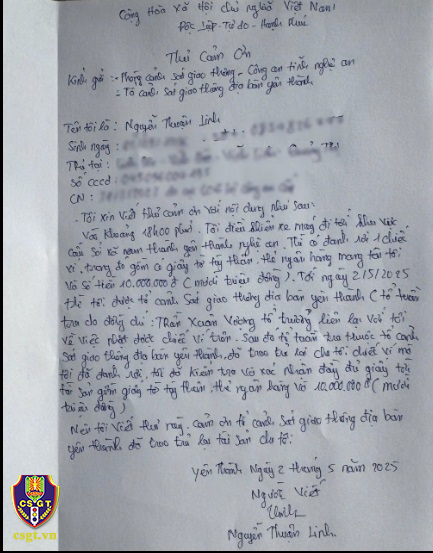 Cộng Hòa xã Hội chủ nghĩa Việt Nam
Độc Lập - Tự do - Hạnh Phúc
Thư Cảm Ơn
Kính gửi: - Phòng cảnh sát giao thông - Công an tỉnh nghệ an
- Tổ cảnh sát giao thông địa bàn yên thành
Tên tôi là: Nguyễn Thuận Linh
Sinh ngày:
Thị tại:
Số CCCD:
CN:
- Tôi xin viết thư cảm ơn với nội dung như sau:
Vào khoảng 18h00 phút. Tôi điều khiển xe máy đi tới khu vực
cầu số xã nam thành yên thành nghệ an. Thì có đánh rơi 1 chiếc
ví, trong đó gồm có giấy tờ tùy thân, thẻ ngân hàng mang tên tôi
Và số tiền 10.000.000 đ (mười triệu đồng). Tới ngày 2/5/2025
thì tôi được tổ cảnh sát giao thông địa bàn yên thành (tổ tuần
tra do đồng chí: Trần Xuân Vương tổ trưởng liên lạc với tôi
về việc nhặt được chiếc ví trên. Sau đó tổ tuần tra thuộc tổ cảnh
sát giao thông địa bàn yên thành, đã trao trả lại cho tôi chiếc ví mà
tôi đã đánh rơi, tôi đã kiểm tra và xác nhận đầy đủ giấy tờ
tài sản gồm giấy tờ tùy thân, thẻ ngân hàng và 10.000.000 đ (mười
triệu đồng)
Nên tôi viết thư này, cảm ơn tổ cảnh sát giao thông địa bàn
yên thành đã trao trả lại tài sản cho tôi.
Yên Thành Ngày 2 tháng 5 năm 2025
Người Viết
Linh
Nguyễn Thuận Linh.
CSGT
csgt.vn